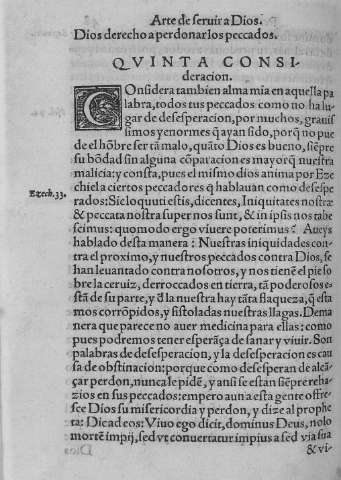 Arte de seruir a Dios.
Dios derecho a perdonar los peccados.
QVINTA CONSI-
deracion.
COnsidera tambien alma mia en aquella pa
labra, todos tus peccados como no ha lu-
gar de desesperacion, por muchos, grauis
simos y enormes q̃ ayan sido, porq̃ no pue
de el hõbre ser tã malo, quãto Dios es bueno, siẽpre
su bõdad sin alguna cõparacion es mayor q̃ nuestra
malicia: y consta, pues el mismo dios anima por Eze
chiel a ciertos peccadores q̃ hablauan como desespe
Ezech. 33.
rados: Sic loquuti estis, dicentes, Iniquitates nostræ
& peccata nostra super nos sunt, & in ipsis nos tabe
scimus: quomodo ergo viuere poterimus? Aueys
hablado desta manera: Nuestras iniquidades con-
tra el proximo, y nuestros peccados contra Dios, se
han leuantado contra nosotros, y nos tienẽ el pie so
bre la ceruiz, derrocados en tierra, tã poderosos e-
stã de su parte, y d̃ la nuestra hay tãta flaqueza, q̃ esta
mos corrõpidos, y fistoladas nuestras llagas. Dema
nera que parece no auer medicina para ellas: como
pues podremos tener esperãça de sanar y viuir. Son
palabras de desesperacion, y la desesperacion es cau
sa de obstinacion: porque como desesperan de alcã-
çar perdon, nunca le pidẽ, y ansi se estan siẽpre reha-
zios en sus peccados: empero aun a esta gente offre-
sce Dios su misericordia y perdon, y dize al prophe
ta: Dic ad eos: Viuo ego dicit, dominus Deus, nolo
mortẽ impij, sed vt conuertatur impius a sed via sua
& vi-